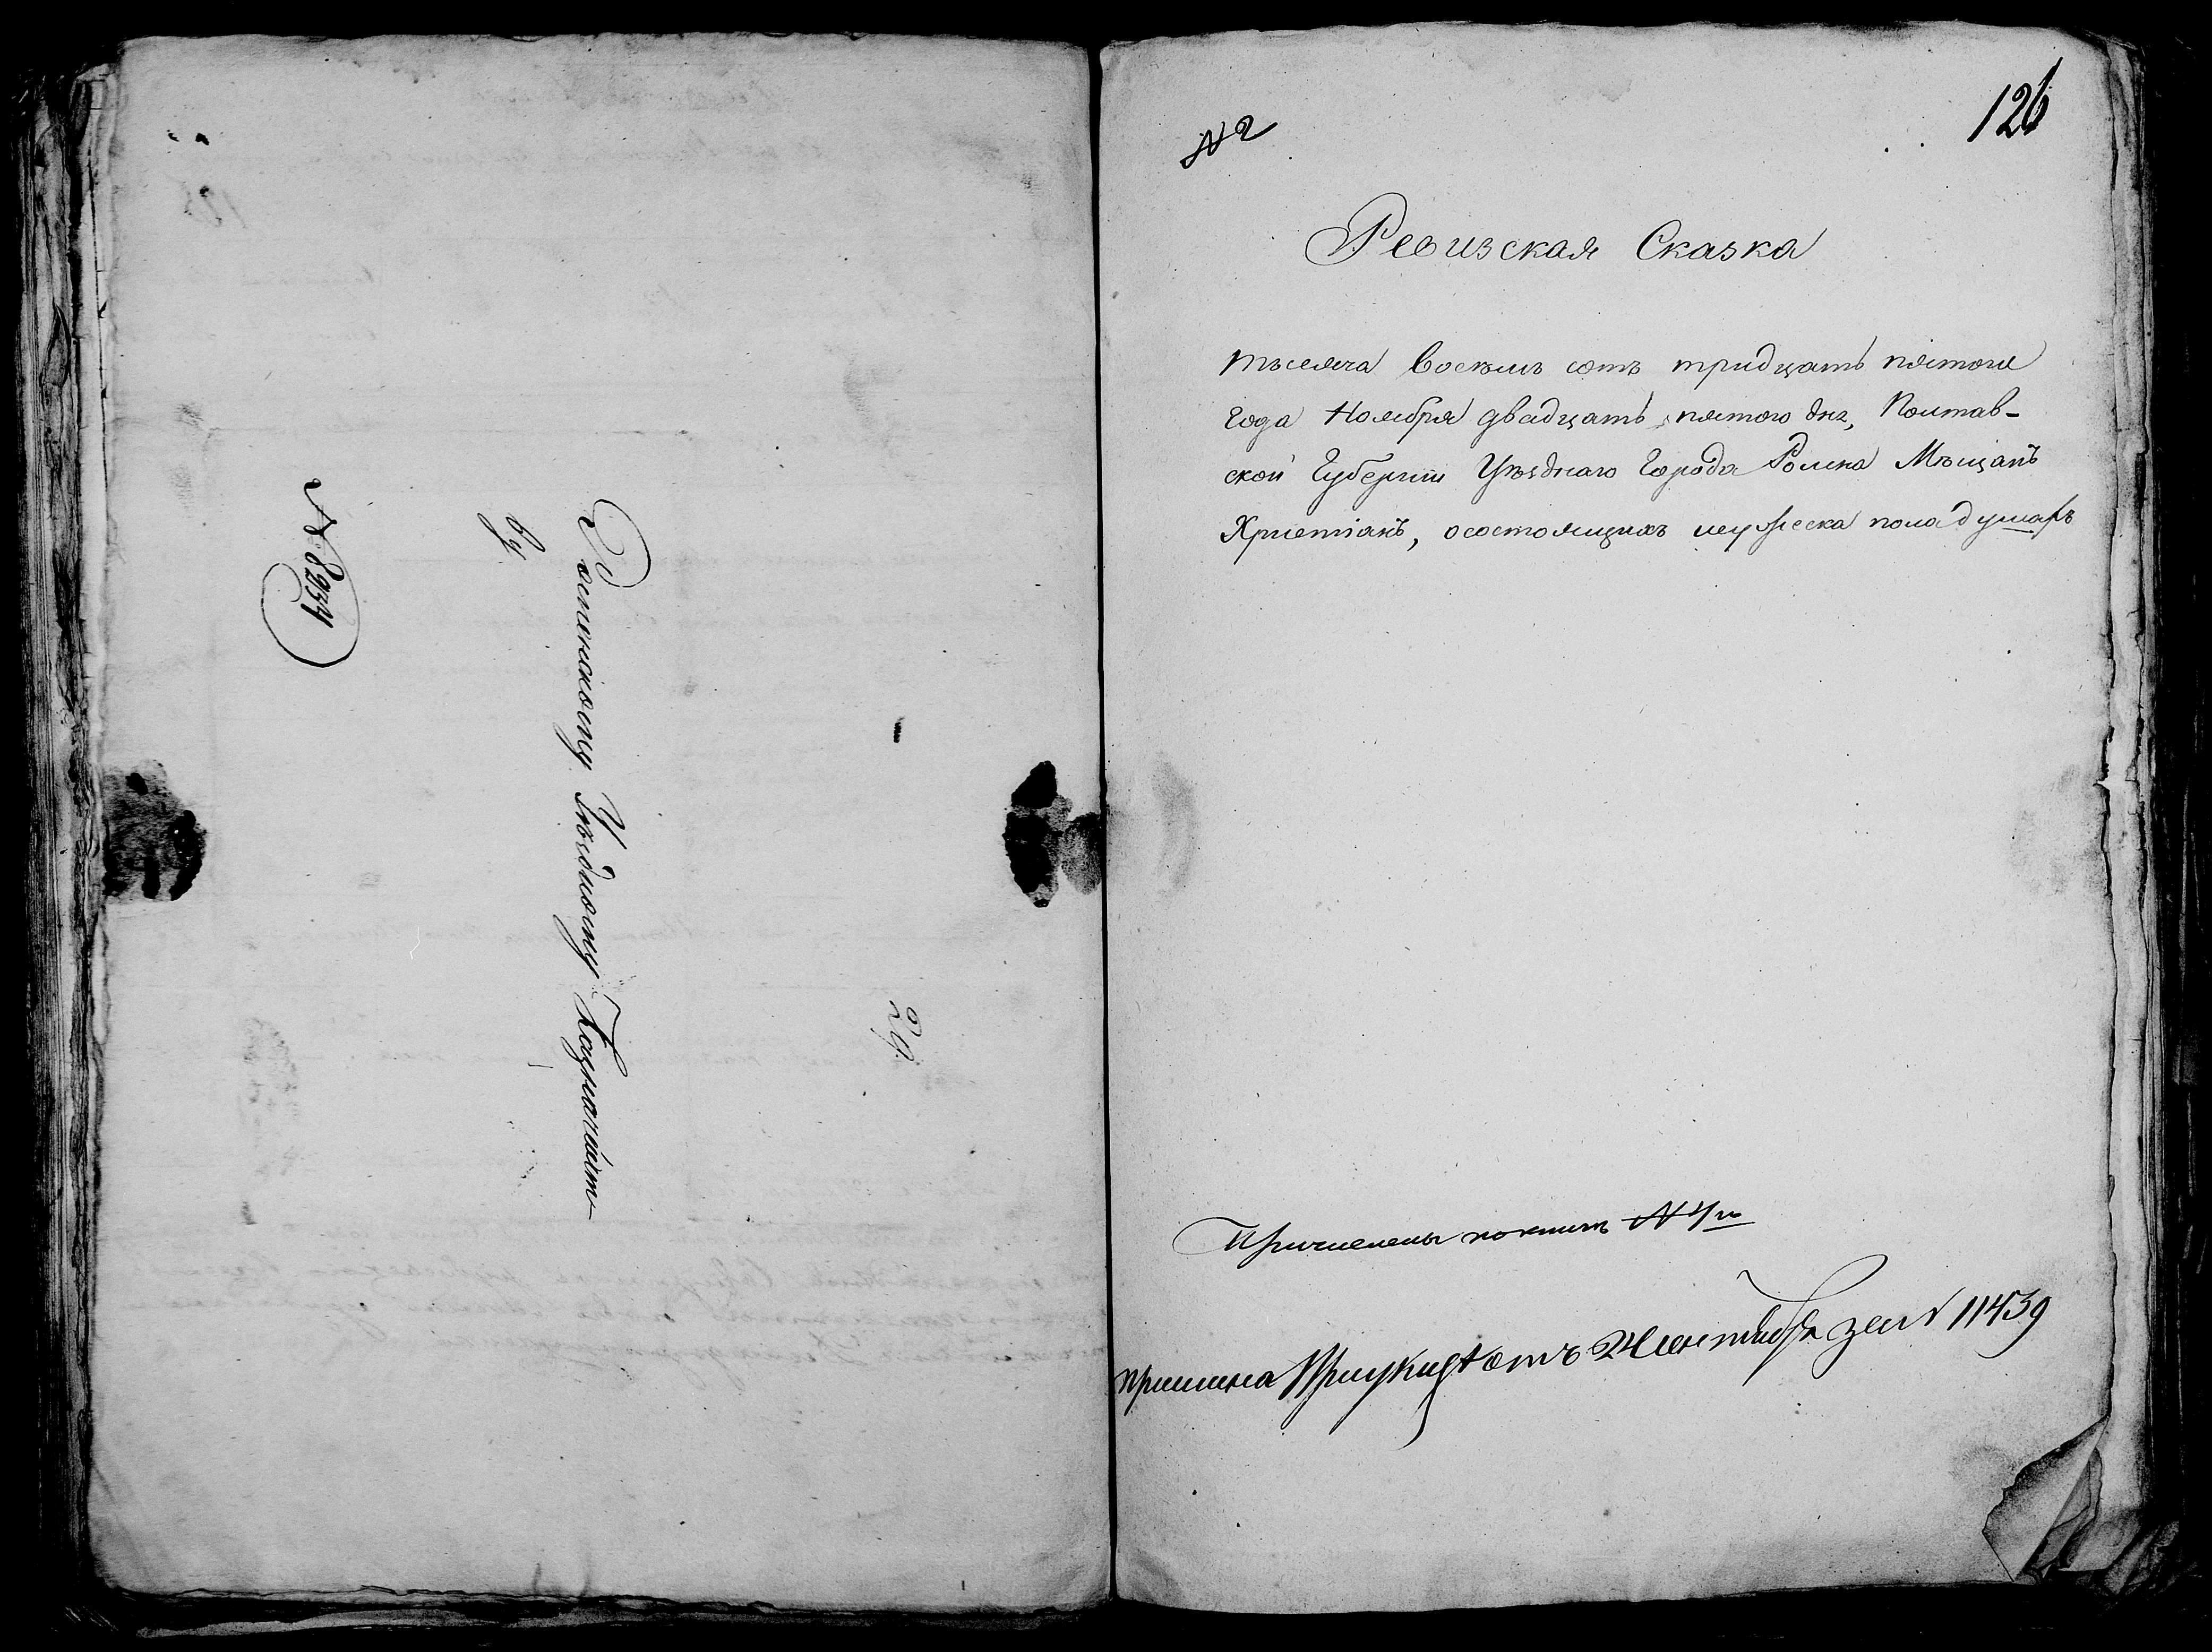 Въ
Роменскому Уѣздному Казначейст
№ 8934
29
126
№ 2
Ревизская Сказка
тысяча восемь сотъ тридцать пятого
года Ноября двадцать пятого дня, Полтав-
ской Губерніи Уѣзднаго Города Ромна Мѣщанъ
Христіанъ, о состоящихъ мужеска пола душахъ
Причислены по книгѣ № 4й
при указѣ отъ 24 Сентября за № 11439